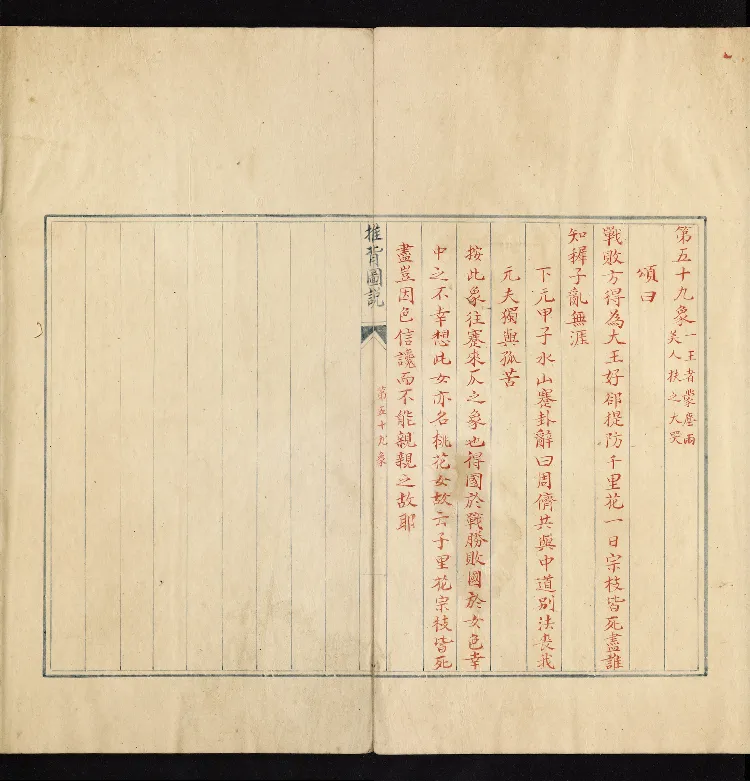 第五十九象 一王者蒙塵兩
美人扶之大哭
頌曰
戰敗方得為大王好卻提防千里花一日宗枝皆死盡誰
知稺子亂無涯
下元甲子水山蹇卦辭曰周儕共與中道別法喪我
元夫獨與孤苦
按此象往蹇來反之象也得國於戰勝敗國於女色幸
中之不幸想此女亦名桃花女故云千里花宗枝皆死
盡豈因色信讒而不能親親之故耶
推背圖說
第五十九象